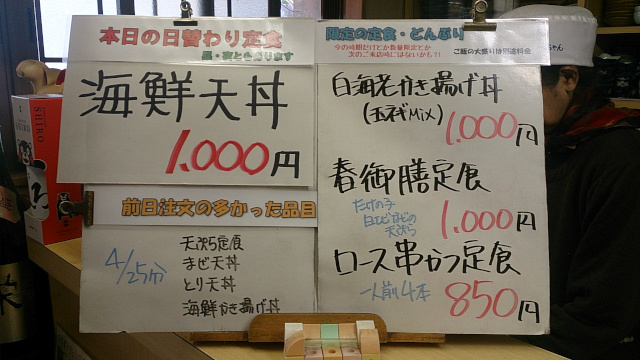 本日の日替わり定食
昼・夜ともあります
海鮮天丼
1.000円
前日注文の多かった品目
4/25分
天ぷら定食
まぜ天丼
とり天丼
海鮮かき揚げ丼
限定の定食・どんぶり
今の時期だけとか数量限定とか
次のご来店時にはないかも?!
ご飯の大盛り特別途料金
白海老かき揚げ丼
(玉ネギMix)
1.000円
春御膳定食
たけの子
白えびなどの
天ぷら
1.000円
ロース串かつ定食
一人前4本
850円
SHIRO